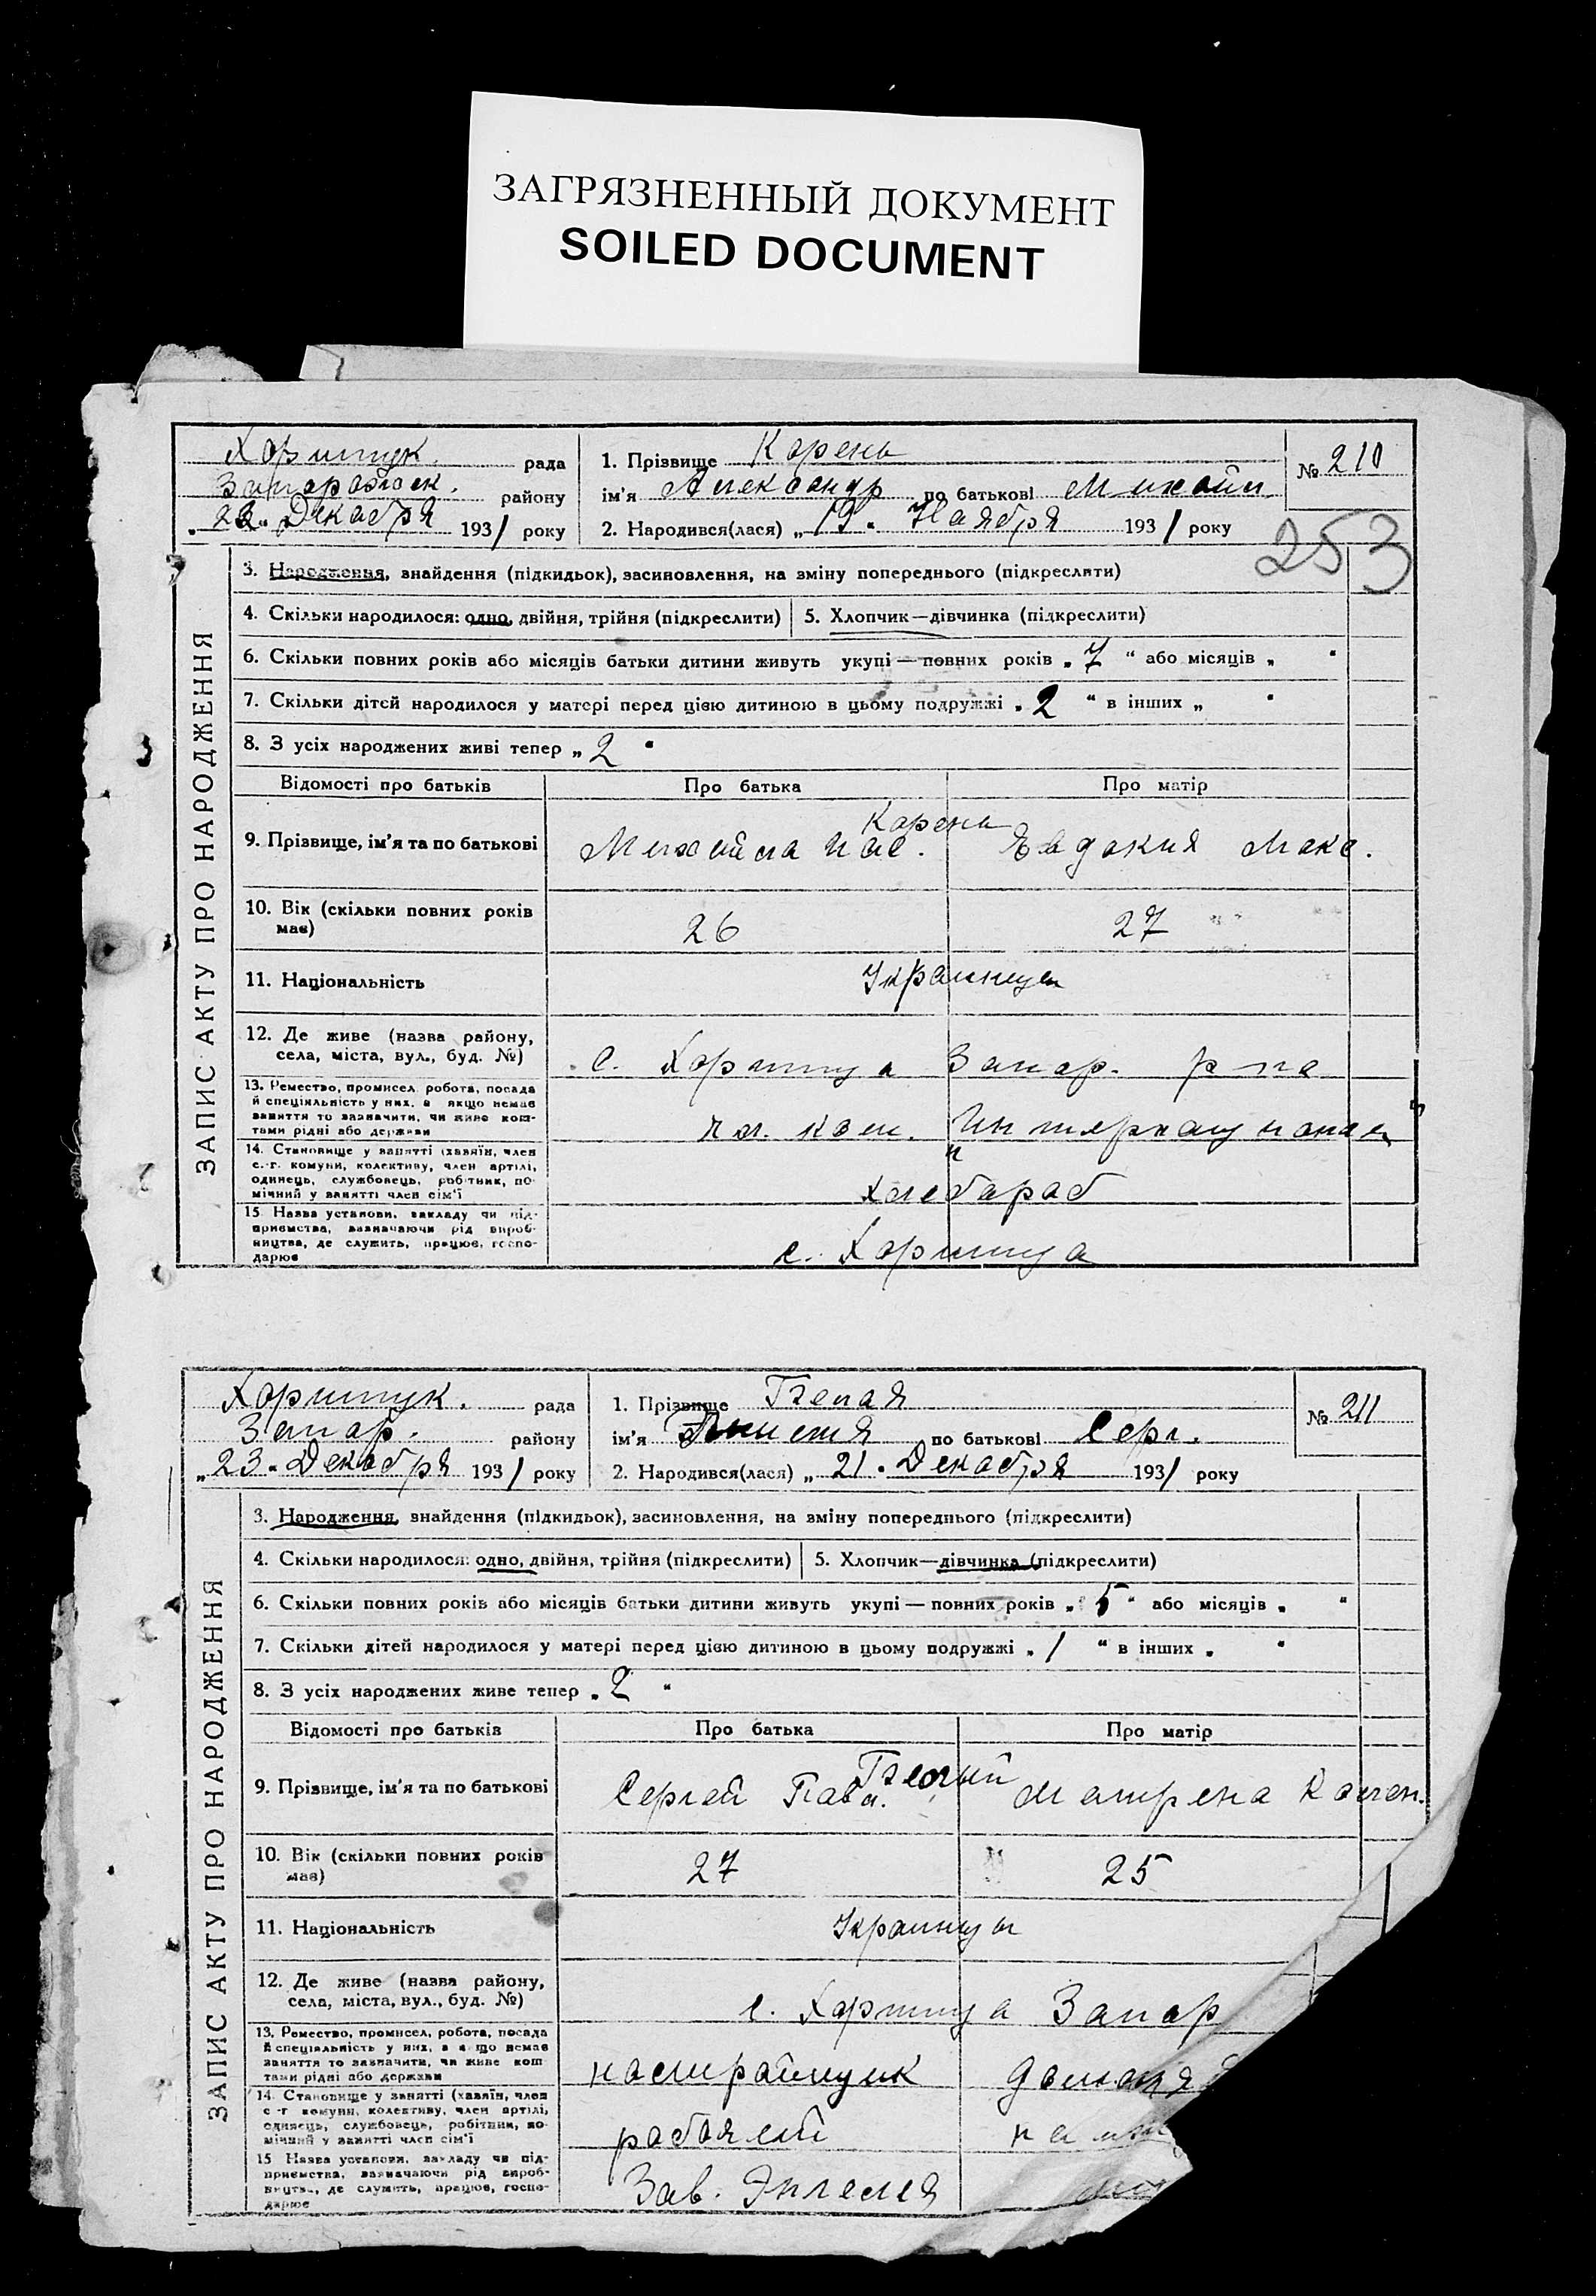 ЗАГРЯЗНЕННЫЙ ДОКУМЕНТ
SOILED DOCUMENT
Хортицк. рада
Запорожск. району
"22" Декабря 1931 року
1. Прізвище Корень
ім'я Александр по батькові Михайл
2. Народився(лася) „19" Ноября 1931 року
№ 210
253
ЗАПИС АКТУ ПРО НАРОДЖЕННЯ
3. Народження, знайдення (підкидьок), засиновлення, на зміну попереднього (підкреслити)
4. Скільки народилося: одно, двійня, трійня (підкреслити) 5. Хлопчик—дівчинка (підкреслити)
6. Скільки повних років або місяців батьки дитини живуть укупі — повних років „7" або місяців „ "
7. Скільки дітей народилося у матері перед цією дитиною в цьому подружжі „2" в інших „ "
8. З усіх народжених живі тепер „2"
Відомості про батьків Про батька Про матір
9. Прізвище, ім'я та по батькові Корень
Михайла Явдокия Макс.
10. Вік (скільки повних років має) 26 27
11. Національність Украинцы
12. Де живе (назва району, села, міста, вул., буд. №) с. Хортица Запор. р-на
13. Ремество, промисел, робота, посада й спеціяльність у них, а якщо немає заняття то зазначити, чи живе коштами рідні або держави чл. ком. "Интернационал"
14. Становище у занятті (хазяїн, член с.-г. комуни, колективу, член артілі, одинець, службовець, робітник, помічний у занятті член сім'ї хлебороб
15 Назва установи, закладу чи підприємства, зазначаючи рід виробництва, де служить, працює, господарює с. Хортица
Хортицк. рада
Запор. району
„23" Декабря 1931 року
1. Прізвище
ім'я по батькові Серг.
2. Народився(лася) „21" Декабря 1931 року
№ 211
ЗАПИС АКТУ ПРО НАРОДЖЕННЯ
3. Народження, знайдення (підкидьок), засиновлення, на зміну попереднього (підкреслити)
4. Скільки народилося: одно, двійня, трійня (підкреслити) 5. Хлопчик—дівчинка (підкреслити)
6. Скільки повних років або місяців батьки дитини живуть укупі — повних років „5" або місяців „ "
7. Скільки дітей народилося у матері перед цією дитиною в цьому подружжі „1" в інших „ "
8. З усіх народжених живе тепер „2"
Відомості про батьків Про батька Про матір
9. Прізвище, ім'я та по батькові Сергей Павл. Матрена
10. Вік (скільки повних років має) 27 25
11. Національність Украинцы
12. Де живе (назва району, села, міста, вул., буд. №) с. Хортица Запор
13. Ремество, промисел, робота, посада й спеціяльність у них, а якщо немає заняття то зазначити, чи живе коштами рідні або держави
14. Становище у занятті (хазяїн, член с-г комуни, колективу, член артілі, одинець, службовець, робітник, помічний у занятті член сім'ї рабочий
15 Назва установи, закладу чи підприємства, зазначаючи рід виробництва, де служить, працює, господарює Зав. Энгельса